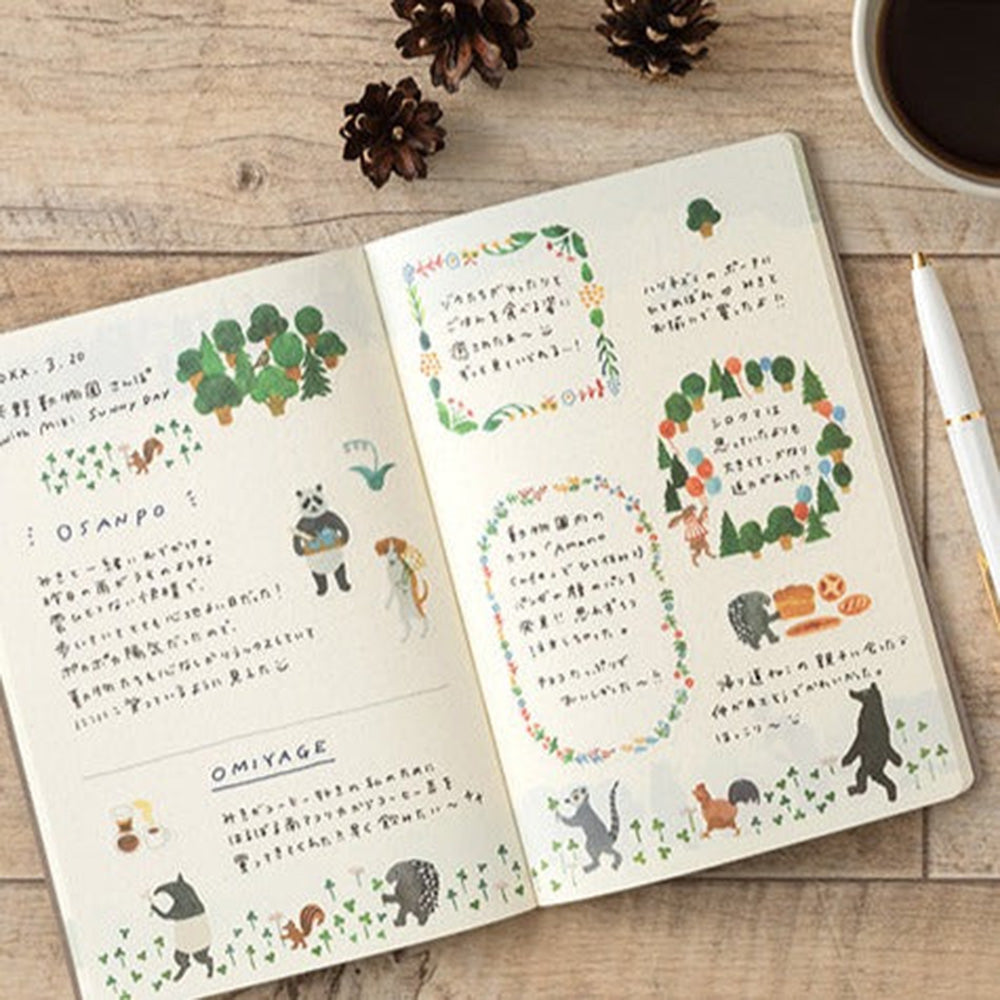 0XX.3.20
動物園 さんぽ
with Miki SUNNY DAY
OSANPO
みきと一緒にお出かけ。
昨日の雨がうそのような
雲ひとつない快晴で、
歩いていてとても心地よい日だった!
ポカポカ陽気だったので、
動物たちも心なしかリラックスしていて
にこにこ笑っているように見えた
OMIYAGE
みきがコーヒー好きの私のために
はるばる南アフリカからコーヒー豆を
買ってきてくれた!!早く飲みたい〜
ゾウたちがゆったりと
ごはんを食べる姿に
癒されたぁ〜
ずっと見ていられる…!
ハリネズミのポーチに
ひとめぼれ みきと
お揃いで買ったよ!!
シロクマは
思っていたよりも
大きくて、かなり
迫力があった!!
動物園内の
カフェ「Amano
Coffee」でひと休み
パンダの顔のパンを
発見!! 思わず2つ
注文しちゃった。
チョコたっぷりで
おいしかった〜!!
帰り道ねこの親子に会った
仲が良さそうでかわいかった。
ほっこり〜